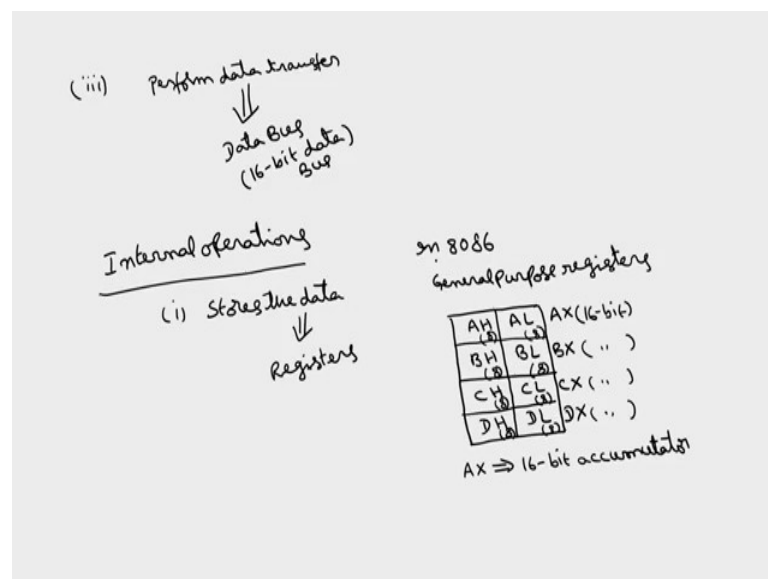 (iii) Perform data transfer
⇓
Data Bus
(16-bit data)
Bus
Internal operations
(i) Stores the data
⇓
Registers
In 8086
General purpose registers
AH (8) AL (8) AX (16-bit)
BH (8) BL (8) BX ( ,, )
CH (8) CL (8) CX ( ,, )
DH (8) DL (8) DX ( ,, )
AX ⇒ 16-bit accumulator